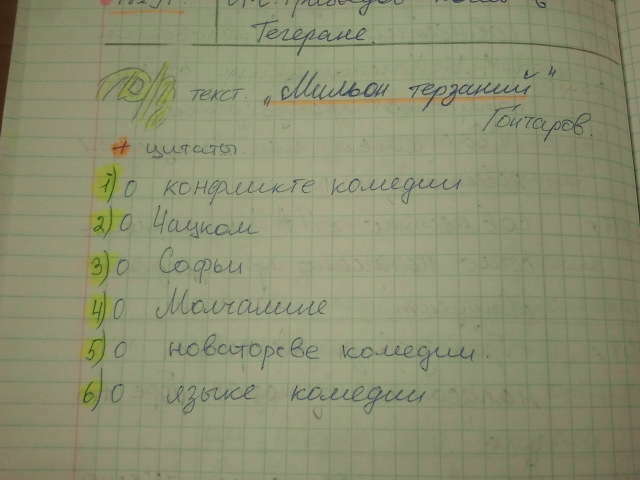 А.С. Грибоедов
Тегеране.
текст. „Мильон терзаний"
Гончаров.
* цитаты
1) о конфликте комедии
2) о Чацком
3) о Софьи
4) о Молчалине
5) о новаторсве комедии.
6) о языке комедии